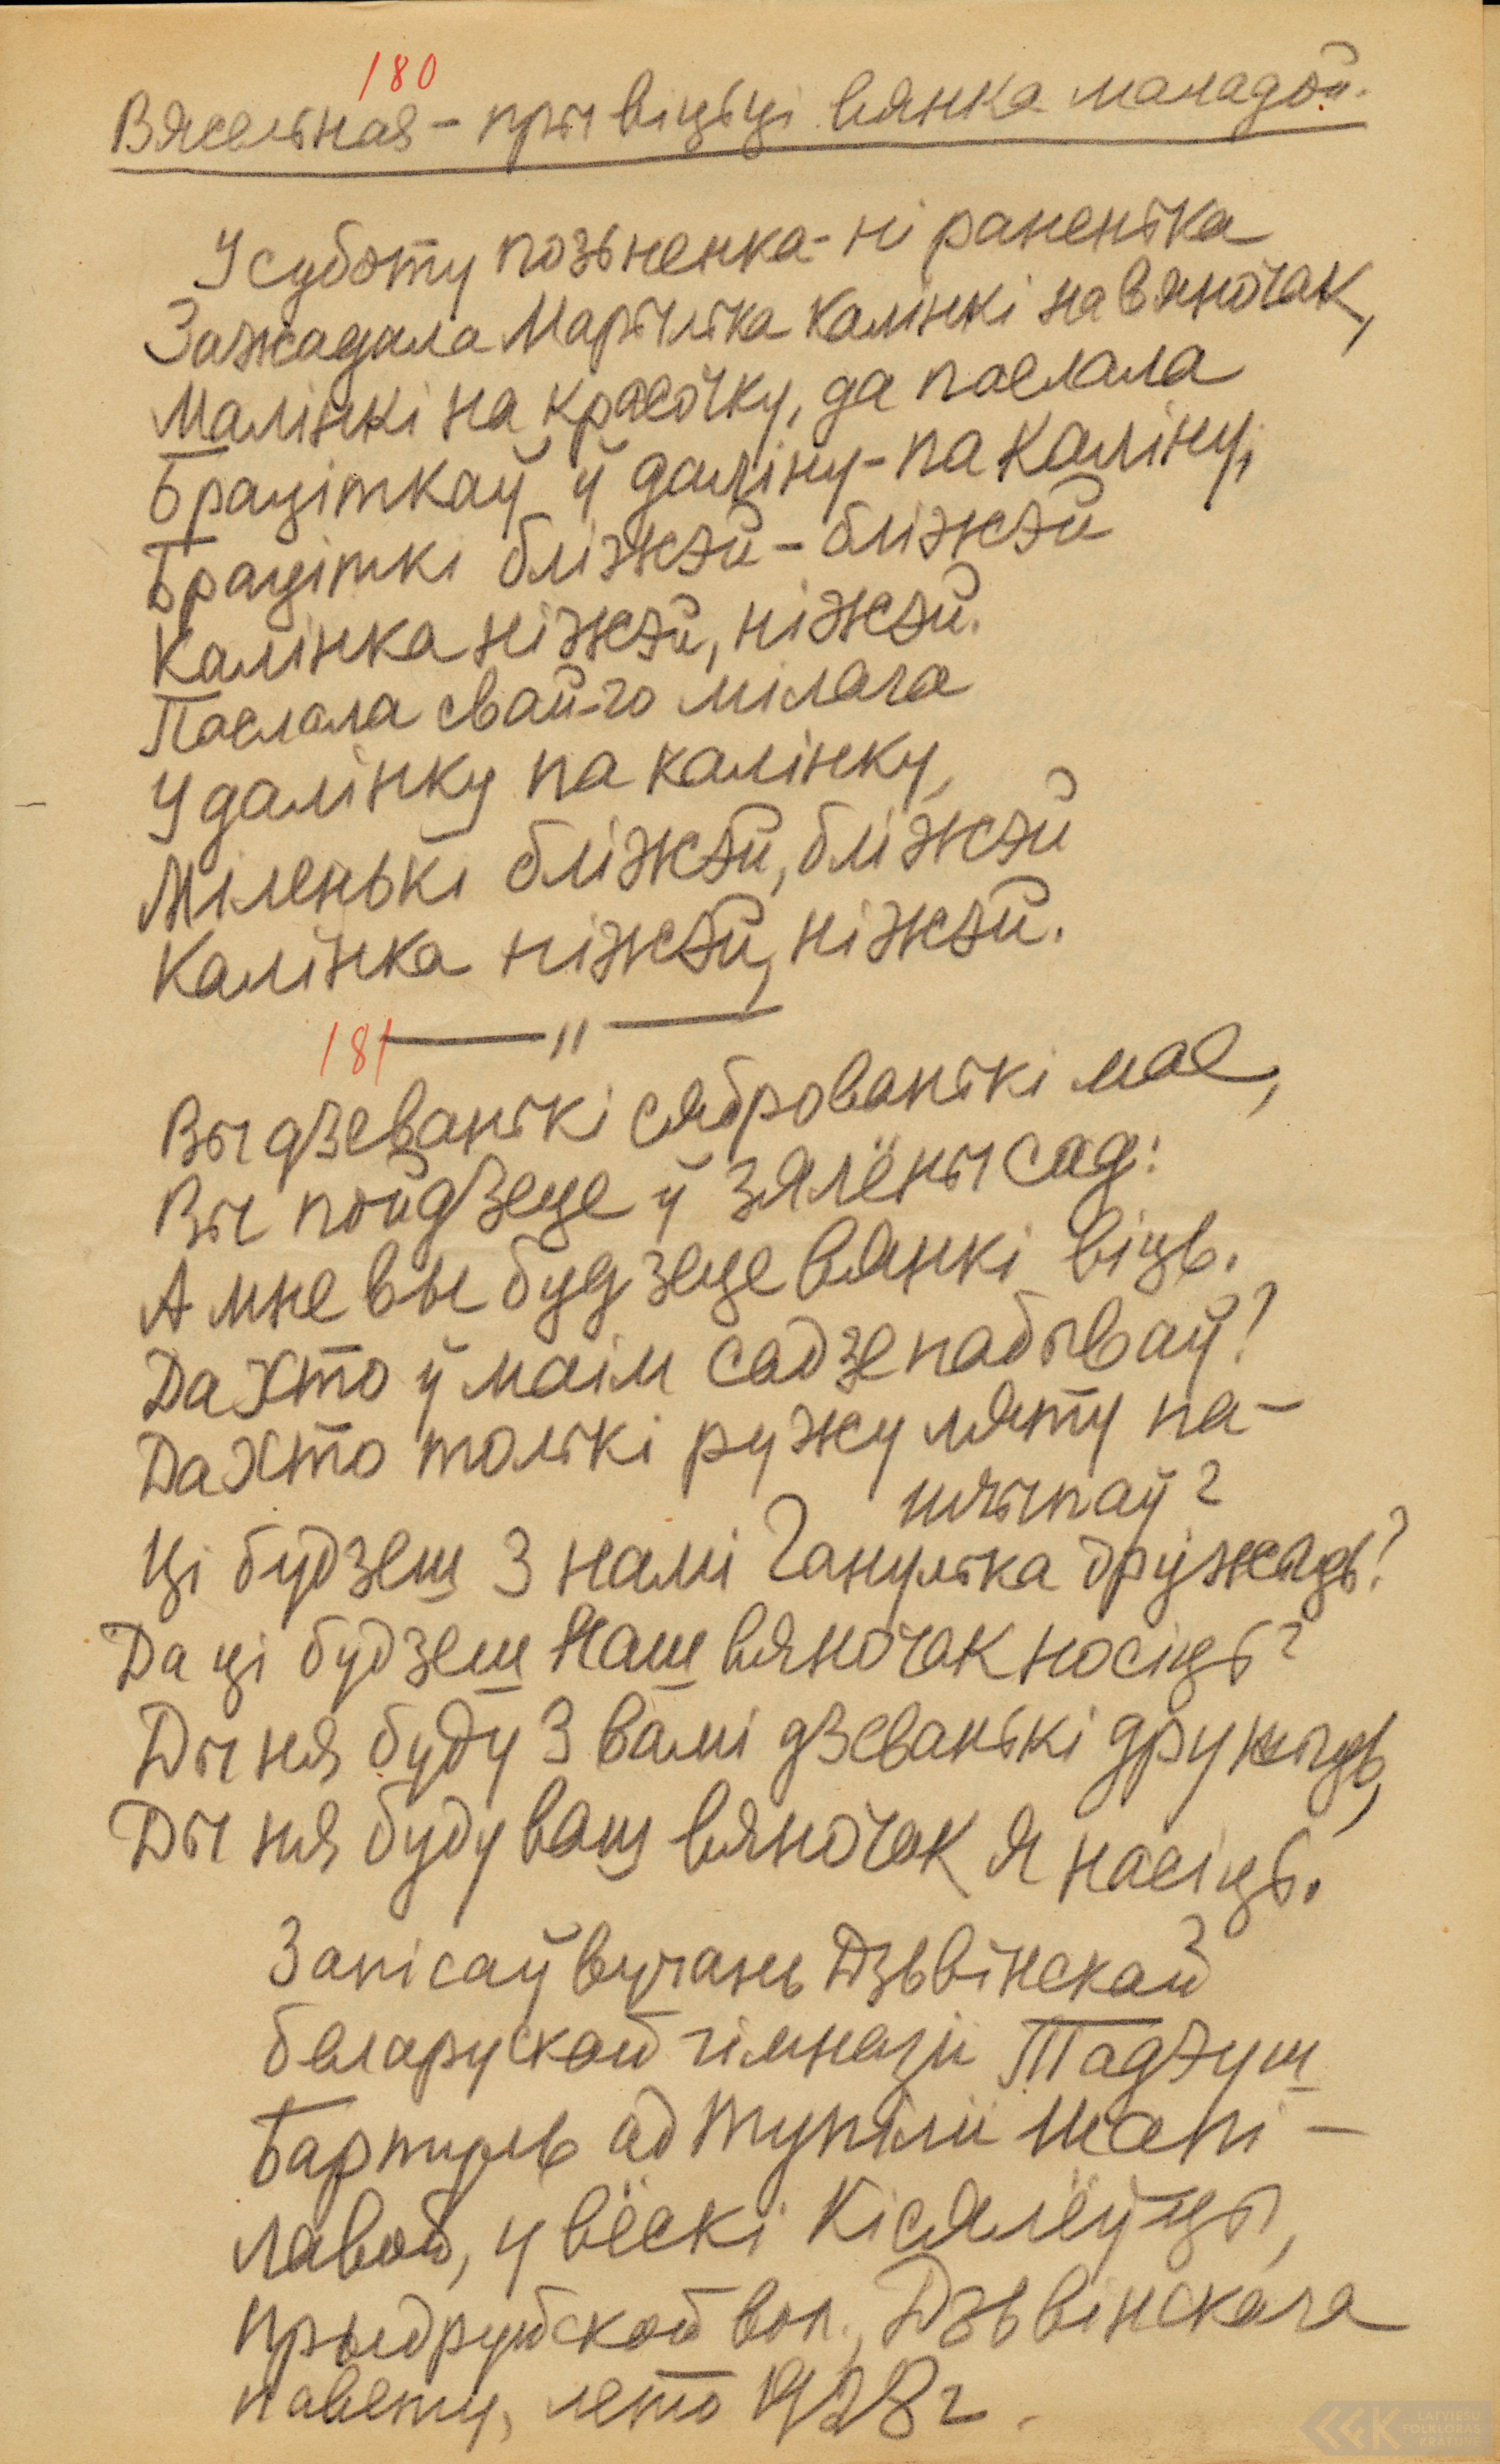 180
Вясельная - пры віцьці вянка маладой.
У суботу позьненка - ні раненька
Зажадала Марылька калінкі на вяночак,
Малінкі на красочку, да паслала
Браціткаў ў даліну - па каліну,
Браціткі бліжэй - бліжэй
Калінка ніжэй, ніжэй.
Паслала свай-го мілага
У далінку па калінку,
Міленькі бліжэй, бліжэй
Калінка ніжэй, ніжэй.
181 — " —
Вы дзеванькі сяброванькі мае,
Вы пойдзеце ў зялёны сад:
А мне вы будзеце вянкі віць.
Да хто ў маім садзе пабываў?
Да хто толькі ружу мяту па-
шчыпаў?
Ці будзеш з намі Ганулька дружыць?
Да ці будзеш наш вяночак носіць?
Ды ня буду з вамі дзеванькі дружыць,
Ды ня буду ваш вяночак я насіць.
Запісаў вучань Дзьвінскай
беларускай гімназіі Тадэуш
Бартуль ад Тупіліі Шапі-
лавай, у вёскі Кісялёўцы,
Прыдруйской вол., Дзьвінскага
павету, лето 1928 г.
LATVIEŠU
FOLKLORAS
KRĀTUVE